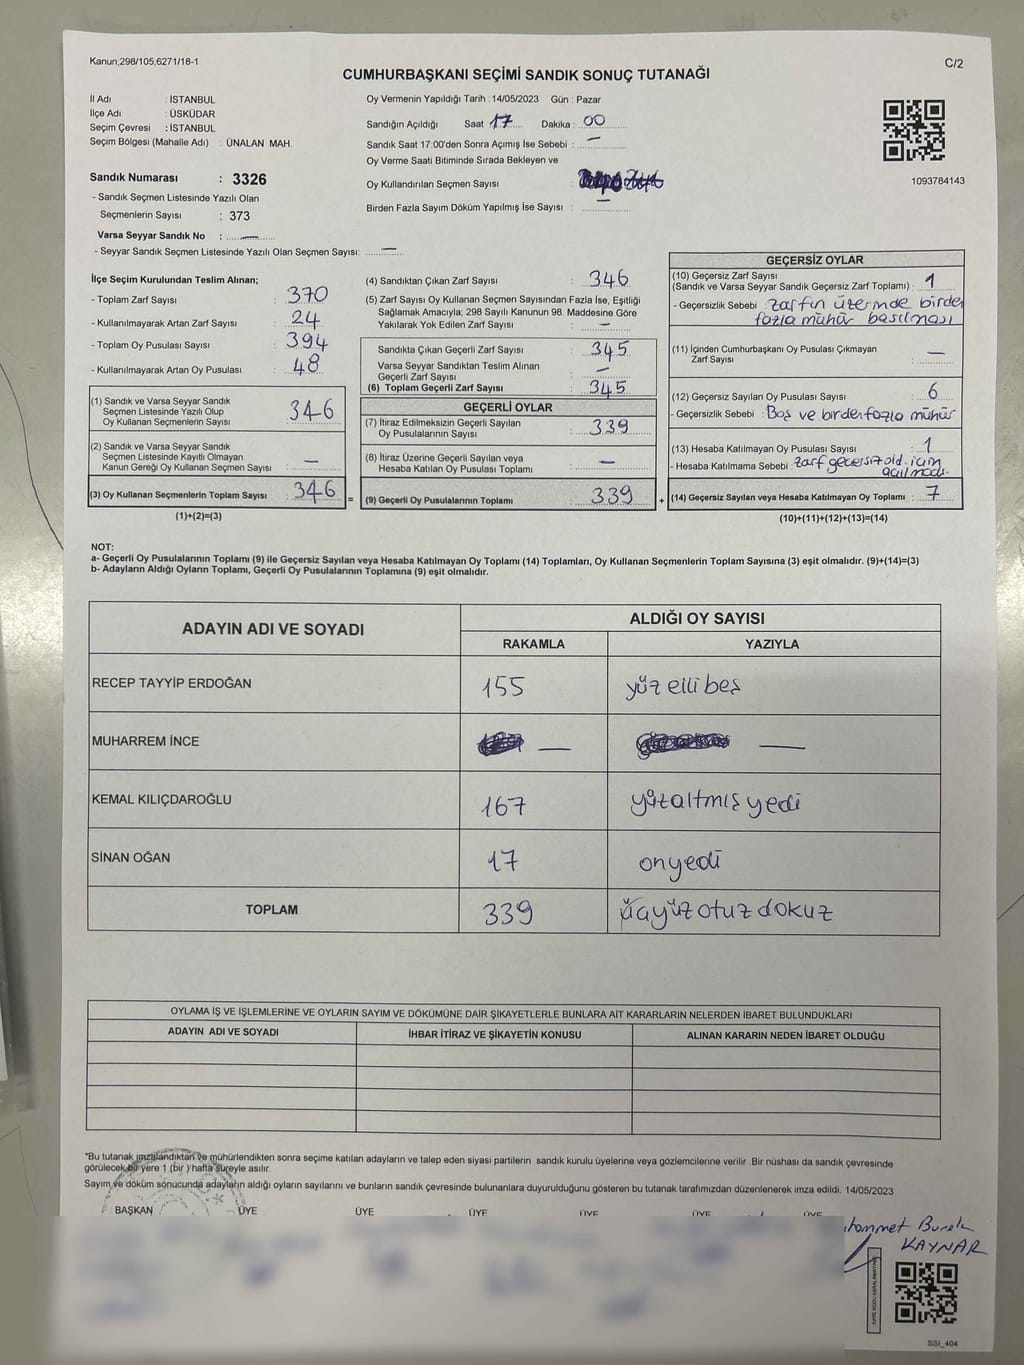 Kanun;298/105;6271/18-1
C/2
CUMHURBAŞKANI SEÇİMİ SANDIK SONUÇ TUTANAĞI
İl Adı : İSTANBUL
İlçe Adı : ÜSKÜDAR
Seçim Çevresi : İSTANBUL
Seçim Bölgesi (Mahalle Adı) : ÜNALAN MAH.
Sandık Numarası : 3326
- Sandık Seçmen Listesinde Yazılı Olan
Seçmenlerin Sayısı : 373
Varsa Seyyar Sandık No : —
- Seyyar Sandık Seçmen Listesinde Yazılı Olan Seçmen Sayısı: —
Oy Vermenin Yapıldığı Tarih : 14/05/2023 Gün : Pazar
Sandığın Açıldığı Saat 17 Dakika : 00
Sandık Saat 17:00'den Sonra Açımış İse Sebebi : —
Oy Verme Saati Bitiminde Sırada Bekleyen ve
Oy Kullandırılan Seçmen Sayısı :
Birden Fazla Sayım Döküm Yapılmış İse Sayısı : —
1093784143
İlçe Seçim Kurulundan Teslim Alınan;
- Toplam Zarf Sayısı : 370
- Kullanılmayarak Artan Zarf Sayısı : 24
- Toplam Oy Pusulası Sayısı : 394
- Kullanılmayarak Artan Oy Pusulası : 48
(1) Sandık ve Varsa Seyyar Sandık
Seçmen Listesinde Yazılı Olup
Oy Kullanan Seçmenlerin Sayısı : 346
(2) Sandık ve Varsa Seyyar Sandık
Seçmen Listesinde Kayıtlı Olmayan
Kanun Gereği Oy Kullanan Seçmen Sayısı : —
(3) Oy Kullanan Seçmenlerin Toplam Sayısı : 346 =
(1)+(2)=(3)
(4) Sandıktan Çıkan Zarf Sayısı : 346
(5) Zarf Sayısı Oy Kullanan Seçmen Sayısından Fazla İse, Eşitliği
Sağlamak Amacıyla; 298 Sayılı Kanunun 98. Maddesine Göre
Yakılarak Yok Edilen Zarf Sayısı : —
Sandıkta Çıkan Geçerli Zarf Sayısı : 345
Varsa Seyyar Sandıktan Teslim Alınan
Geçerli Zarf Sayısı : —
(6) Toplam Geçerli Zarf Sayısı : 345
GEÇERLİ OYLAR
(7) İtiraz Edilmeksizin Geçerli Sayılan
Oy Pusulalarının Sayısı : 339
(8) İtiraz Üzerine Geçerli Sayılan veya
Hesaba Katılan Oy Pusulası Toplamı : —
(9) Geçerli Oy Pusulalarının Toplamı : 339 +
GEÇERSİZ OYLAR
(10) Geçersiz Zarf Sayısı
(Sandık ve Varsa Seyyar Sandık Geçersiz Zarf Toplamı) : 1
- Geçersizlik Sebebi : zarfın üzerinde birden
fazla mühür basılması
(11) İçinden Cumhurbaşkanı Oy Pusulası Çıkmayan
Zarf Sayısı : —
(12) Geçersiz Sayılan Oy Pusulası Sayısı : 6
- Geçersizlik Sebebi : Boş ve birden fazla mühür
(13) Hesaba Katılmayan Oy Pusulası Sayısı : 1
- Hesaba Katılmama Sebebi : zarf geçersiz old. için
açılmadı.
(14) Geçersiz Sayılan veya Hesaba Katılmayan Oy Toplamı : 7
(10)+(11)+(12)+(13)=(14)
NOT:
a- Geçerli Oy Pusulalarının Toplamı (9) ile Geçersiz Sayılan veya Hesaba Katılmayan Oy Toplamı (14) Toplamları, Oy Kullanan Seçmenlerin Toplam Sayısına (3) eşit olmalıdır. (9)+(14)=(3)
b- Adayların Aldığı Oyların Toplamı, Geçerli Oy Pusulalarının Toplamına (9) eşit olmalıdır.
ADAYIN ADI VE SOYADI
ALDIĞI OY SAYISI
RAKAMLA YAZIYLA
RECEP TAYYİP ERDOĞAN 155 yüz elli beş
MUHARREM İNCE — —
KEMAL KILIÇDAROĞLU 167 yüzaltmış yedi
SİNAN OĞAN 17 onyedi
TOPLAM 339 üçyüz otuz dokuz
OYLAMA İŞ VE İŞLEMLERİNE VE OYLARIN SAYIM VE DÖKÜMÜNE DAİR ŞİKAYETLERLE BUNLARA AİT KARARLARIN NELERDEN İBARET BULUNDUKLARI
ADAYIN ADI VE SOYADI İHBAR İTİRAZ VE ŞİKAYETİN KONUSU ALINAN KARARIN NEDEN İBARET OLDUĞU
*Bu tutanak imzalandıktan ve mühürlendikten sonra seçime katılan adayların ve talep eden siyasi partilerin sandık kurulu üyelerine veya gözlemcilerine verilir .Bir nüshası da sandık çevresinde
görülecek bir yere 1 (bir ) hafta süreyle asılır.
Sayım ve döküm sonucunda adayların aldığı oyların sayılarını ve bunların sandık çevresinde bulunanlara duyurulduğunu gösteren bu tutanak tarafımızdan düzenlenerek imza edildi. 14/05/2023
BAŞKAN ÜYE ÜYE ÜYE ÜYE ÜYE ÜYE
Burak
KAYNAR
SSI_404